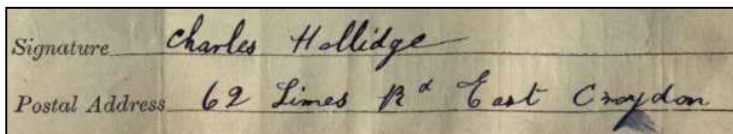 Signature Charles Hollidge
Postal Address 62 Limes Rd East Croydon